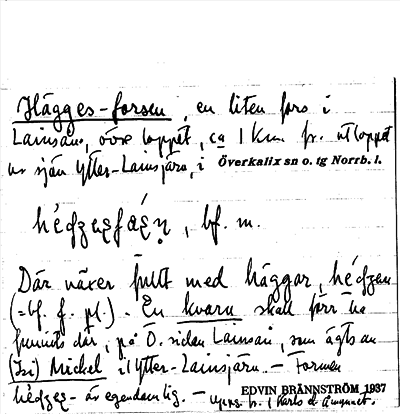 Hägges-forsen, en liten fors i
Lainsån, övre loppet, ca 1 km fr. utloppet
ur sjön Ytter-Lainsjärv, i Överkalix sn o. tg Norrb. l.
bf. m.
Där växer fullt med häggar,
(=bf. f. pl.). En kvarn skall förr ha
funnits där, på Ö. sidan Lainsån, som ägts av
Mickel i Ytter-Lainsjärv. — Formen
- är egendomlig. — uppg. fr.
EDVIN BRÄNNSTRÖM 1937